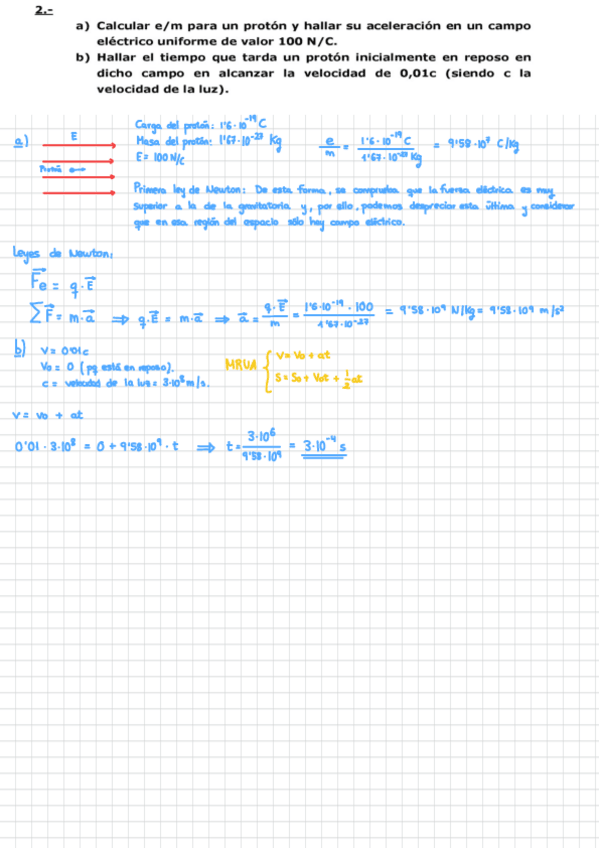 2.-
a) Calcular e/m para un protón y hallar su aceleración en un campo
eléctrico uniforme de valor 100 N/C.
b) Hallar el tiempo que tarda un protón inicialmente en reposo en
dicho campo en alcanzar la velocidad de 0,01c (siendo c la
velocidad de la luz).
a) E
Protón
Carga del protón: 1'6·10⁻¹⁹ C
Masa del protón: 1'67·10⁻²⁷ Kg
E = 100 N/C
e/m = 1'6·10⁻¹⁹ C / 1'67·10⁻²⁷ Kg = 9'58·10⁷ C/Kg
Primera ley de Newton: De esta forma, se comprueba que la fuerza eléctrica es muy
superior a la de la gravitatoria y, por ello, podemos despreciar esta última y considerar
que en esa región del espacio sólo hay campo eléctrico.
Leyes de Newton:
F⃗e = q·E⃗
ΣF⃗ = m·a⃗ ⇒ q·E⃗ = m·a⃗ ⇒ a⃗ = q·E⃗ / m = 1'6·10⁻¹⁹ · 100 / 1'67·10⁻²⁷ = 9'58·10⁹ N/Kg = 9'58·10⁹ m/s²
b) v = 0'01c
V₀ = 0 (pq está en reposo).
c = velocidad de la luz = 3·10⁸ m/s.
MRUA { v = v₀ + at
s = s₀ + v₀t + 1/2 at
v = v₀ + at
0'01 · 3·10⁸ = 0 + 9'58·10⁹ · t ⇒ t = 3·10⁶ / 9'58·10⁹ = 3·10⁻⁴ s